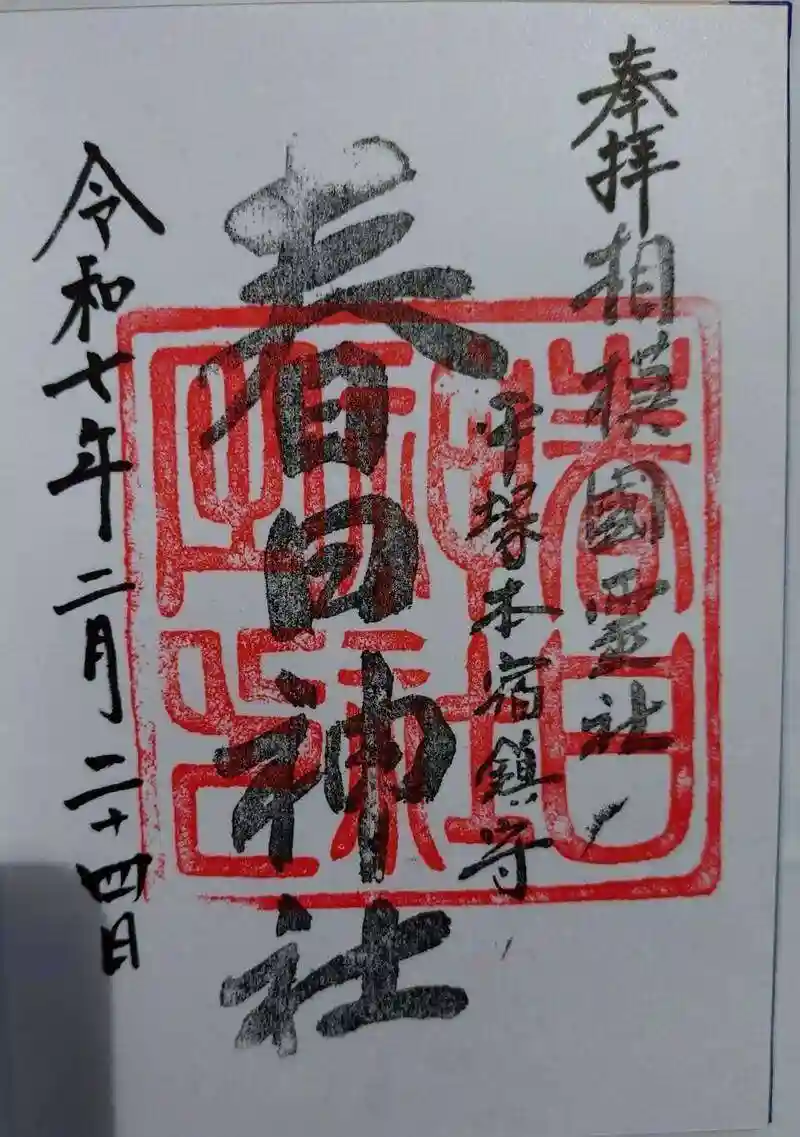 奉拝
相模國霊社
平塚本宿鎮守
春日神社
令和七年二月二十四日